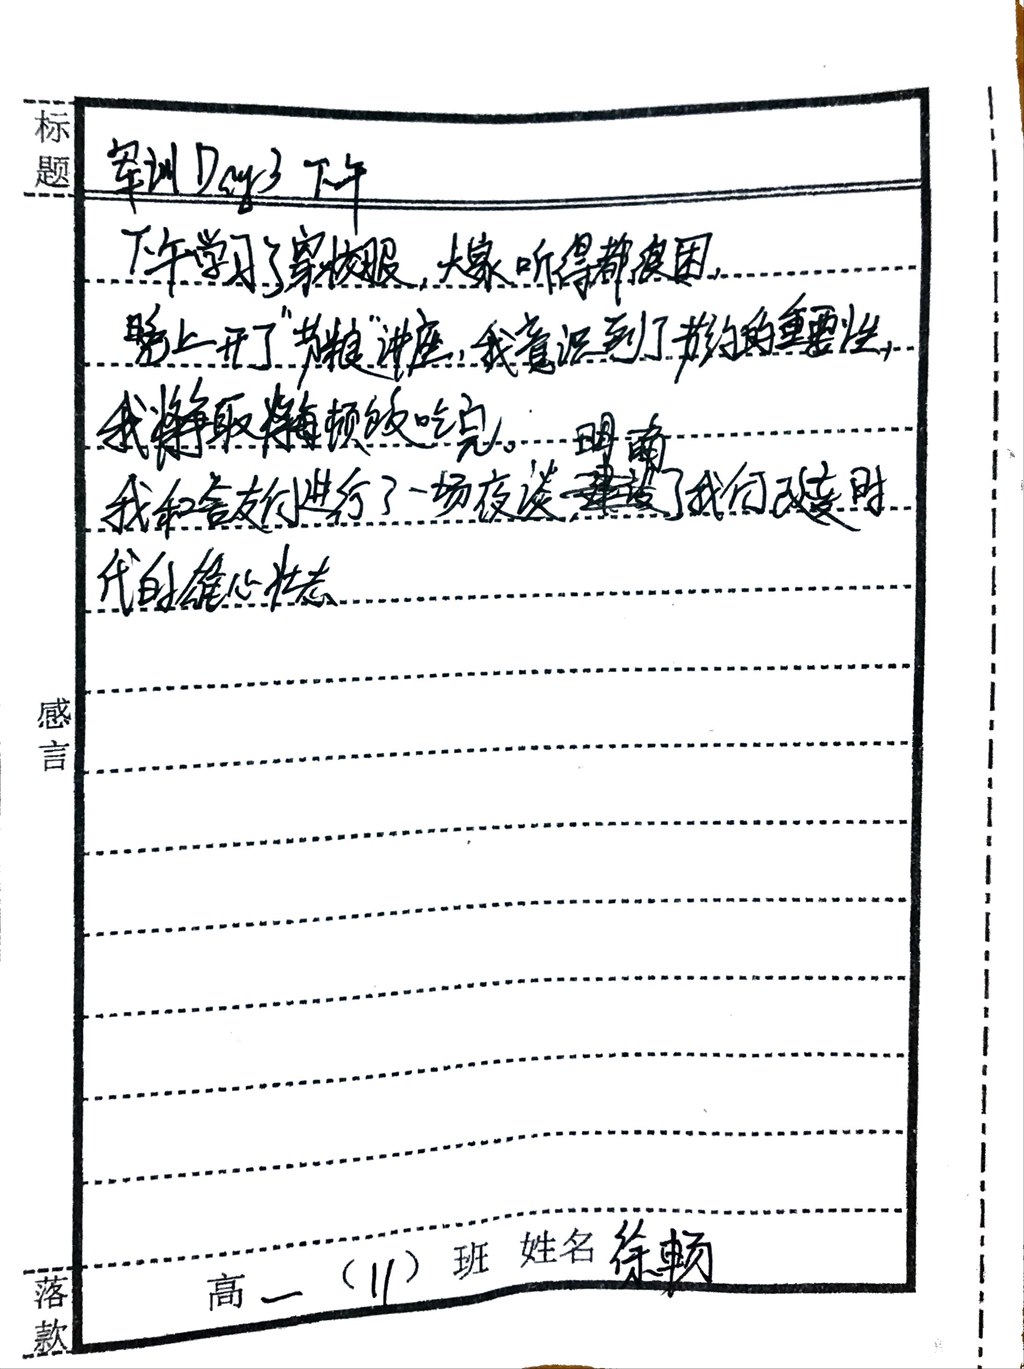 标题
军训 Day3 下午
下午学习了穿校服，大家听得都很困，
晚上开了"节粮"讲座，我意识到了节约的重要性，
我将争取将每顿饭吃完。
明确
我和舍友们进行了一场夜谈，了我们改变时
代的雄心壮志
感言
落款
高一（11）班 姓名 徐畅